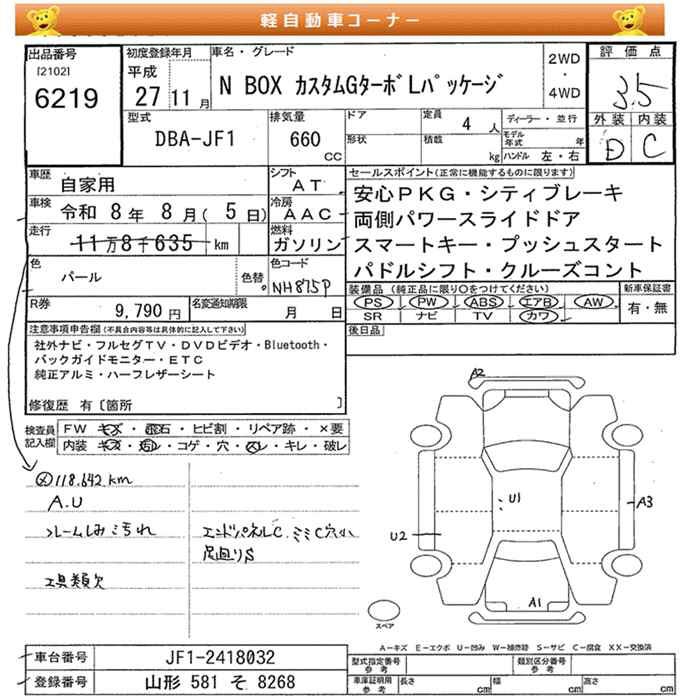 軽自動車コーナー
出品番号
[2102]
6219
初度登録年月
平成
27 11 月
車名・グレード
N BOX カスタムGターボLパッケージ
2WD
・
4WD
評価点
3.5
外装 内装
D C
型式
DBA-JF1
排気量
660
CC
ドア
形状
定員
4 人
積載
kg
ディーラー・並行
モデル年式 年
ハンドル 左・右
車歴
自家用
シフト
AT
車検
令和 8年 8月( 5日)
冷房
AAC
走行
11万8千635 km
燃料
ガソリン
色
パール
色替
カラーコード
NH875P
R券
9,790 円
名変通知期限
月 日
セールスポイント(正常に機能するものに限ります)
安心PKG・シティブレーキ
両側パワースライドドア
スマートキー・プッシュスタート
パドルシフト・クルーズコント
装備品(純正品に限り○をつけてください)
PS PW ABS エアB AW
SR ナビ TV カワ
新車保証書
有・無
後日品
注意事項申告欄(不具合内容等は具体的に記入して下さい)
社外ナビ・フルセグTV・DVDビデオ・Bluetooth・
バックガイドモニター・ETC
純正アルミ・ハーフレザーシート
修復歴 有〔箇所 〕
検査員記入欄
FW キズ・飛石・ヒビ割・リペア跡・×要
内装 キズ・汚レ・コゲ・穴・スレ・キレ・破レ
118.642km
A.U
フレームしみ汚れ
工具類欠
エンドパネルC ミミC穴小
足廻りS
A2
U1
A3
U2
A1
スペア
A-キズ E-エクボ U-凹み W-補修跡 S-サビ C-腐食 XX-交換済
車台番号
JF1-2418032
登録番号
山形 581 そ 8268
型式指定番号
参考
類別区分番号
参考
車庫証明用
参考
長さ cm
幅 cm
高さ cm